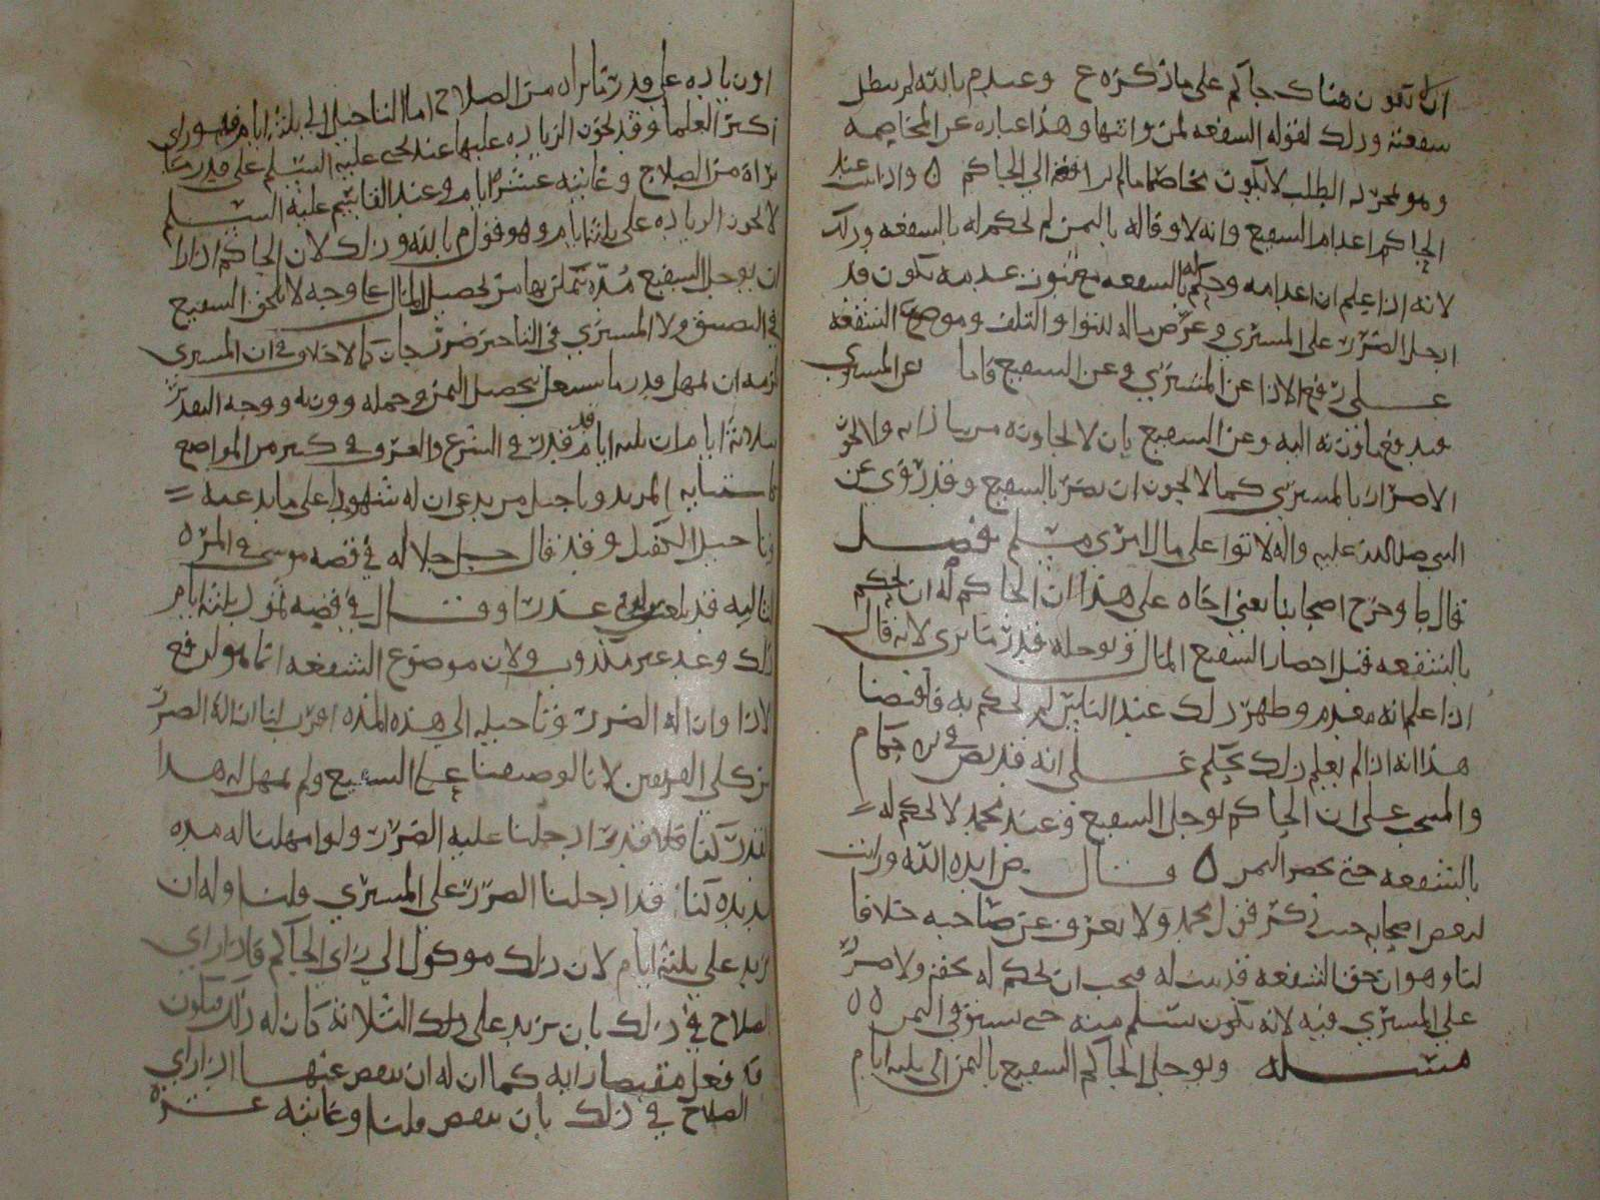 ان يكون هناك حاكم على ما ذكره ع وعند م بالله لم يبطل
شفعته وذلك لقوله الشفعه لمن واثبها وهذا عباره عن المخاصمه
وهو بمجرد الطلب لا يكون مخاصما ما لم يرافعه الى الحاكم ٥ واذا ثبت عند
الحاكم اعدام الشفيع وانه لا وفا له بالثمن لم يحكم له بالشفعه وذلك
لانه اذا علم ان اعدامه وحكم له بالشفعه مع ثبوت عدمه يكون قد
ادخل الضرر على المشتري وعرض ماله للتوا والتلف وموضوع الشفعه
على رفع الاذا عن المشتري وعن الشفيع فاما عن المشتري
فبدفع ماوزنه اليه وعن الشفيع بان لا يجاوره من يتاذا به ولا يجوز
الاضرار بالمشتري كما لا يجوز ان يضر بالشفيع وقد روي عن
النبي صلى الله عليه واله لا توا على مال امرئ مسلم فصل
قال ط وخرج اصحابنا يعني اخاه على هذا ان الحاكم له ان يحكم
بالشفعه قبل احضار الشفيع المال ويوجله قدر ما يرى لانه قال
اذا علم انه معدم وظهر ذلك عند الناس لم يحكم به فاقتضا
هذا انه اذا لم يعلم ذلك يحكم على انه قد نص في احكام
والمنتخب على ان الحاكم يوجل الشفيع وعند محمد لا يحكم له
بالشفعه حتى يحضر الثمن ٥ قال ض ايده الله ورايت
لبعض اصحابه حيث ذكر قول محمد ولا نعرف عن صاحبه خلافا
لنا وهو ان حق الشفعه قد ثبت له فيجب ان يحكم له بحقه ولا ضرر
على المشتري فيه لانه يكون يتسلم منه حتى يستوفي الثمن ٥٥
مسله ويوجل الحاكم الشفيع بالثمن الى ثلثه ايام
او زياده على قدر ما يراه من الصلاح اما التاجيل الى ثلثه ايام فهو راي
اكثر العلما وقد يجوز الزياده عليها عند يحيى عليه السلم على قدر ما
يراه من الصلاح وغايته عشره ايام وعند القاسم عليه السلم
لا يجوز الزياده على ثلثه ايام وهو قول م بالله وذلك لان الحاكم اذا اراد
ان يوجل الشفيع مده يتمكن بها من تحصيل المال على وجه لا يلحق الشفيع
في التضيق ولا المشتري في التاخير ضرر جاز كما لا خلاف في ان المشتري
لزمه ان يمهل قدر ما يشتغل بتحصيل الثمن وحمله ووزنه ووجه التقدير
بثلاثه ايام ان ثلثه ايام قد قدرت في الشرع والعرف في كثير من المواضع
كاستتابه المرتد وتاجيل من يدعي ان له شهودا على ما يدعيه
وتاجيل الكفيل وقد قال جل جلاله في قصه موسى في المره
الثالثه قد بلغت من لدني عذرا وقال في قصه ثمود ثلثه ايام
ذلك وعد غير مكذوب ولان موضوع الشفعه انما هو لدفع
الاذا وازاله الضرر وتاجيله الى هذه المده اقرب لنا ازاله الضرر
من كلي الفريقين لانا لو ضيقنا على الشفيع ولم نمهل له هذا
القدر كنا قد ادخلنا عليه الضرر ولو امهلناله مده
مديده كنا قد ادخلنا الضرر على المشتري قلنا وله ان
يزيد على ثلثه ايام لان ذلك موكول الى راي الحاكم فاذا راى
الصلاح في ذلك بان يزيد على ذلك الثلاثه كان له ذلك فيكون
قد فعل مقتضا رايه كما ان له ان ينقص عنها اذا راى
الصلاح في ذلك بان ينقص قلنا وغايته عشره